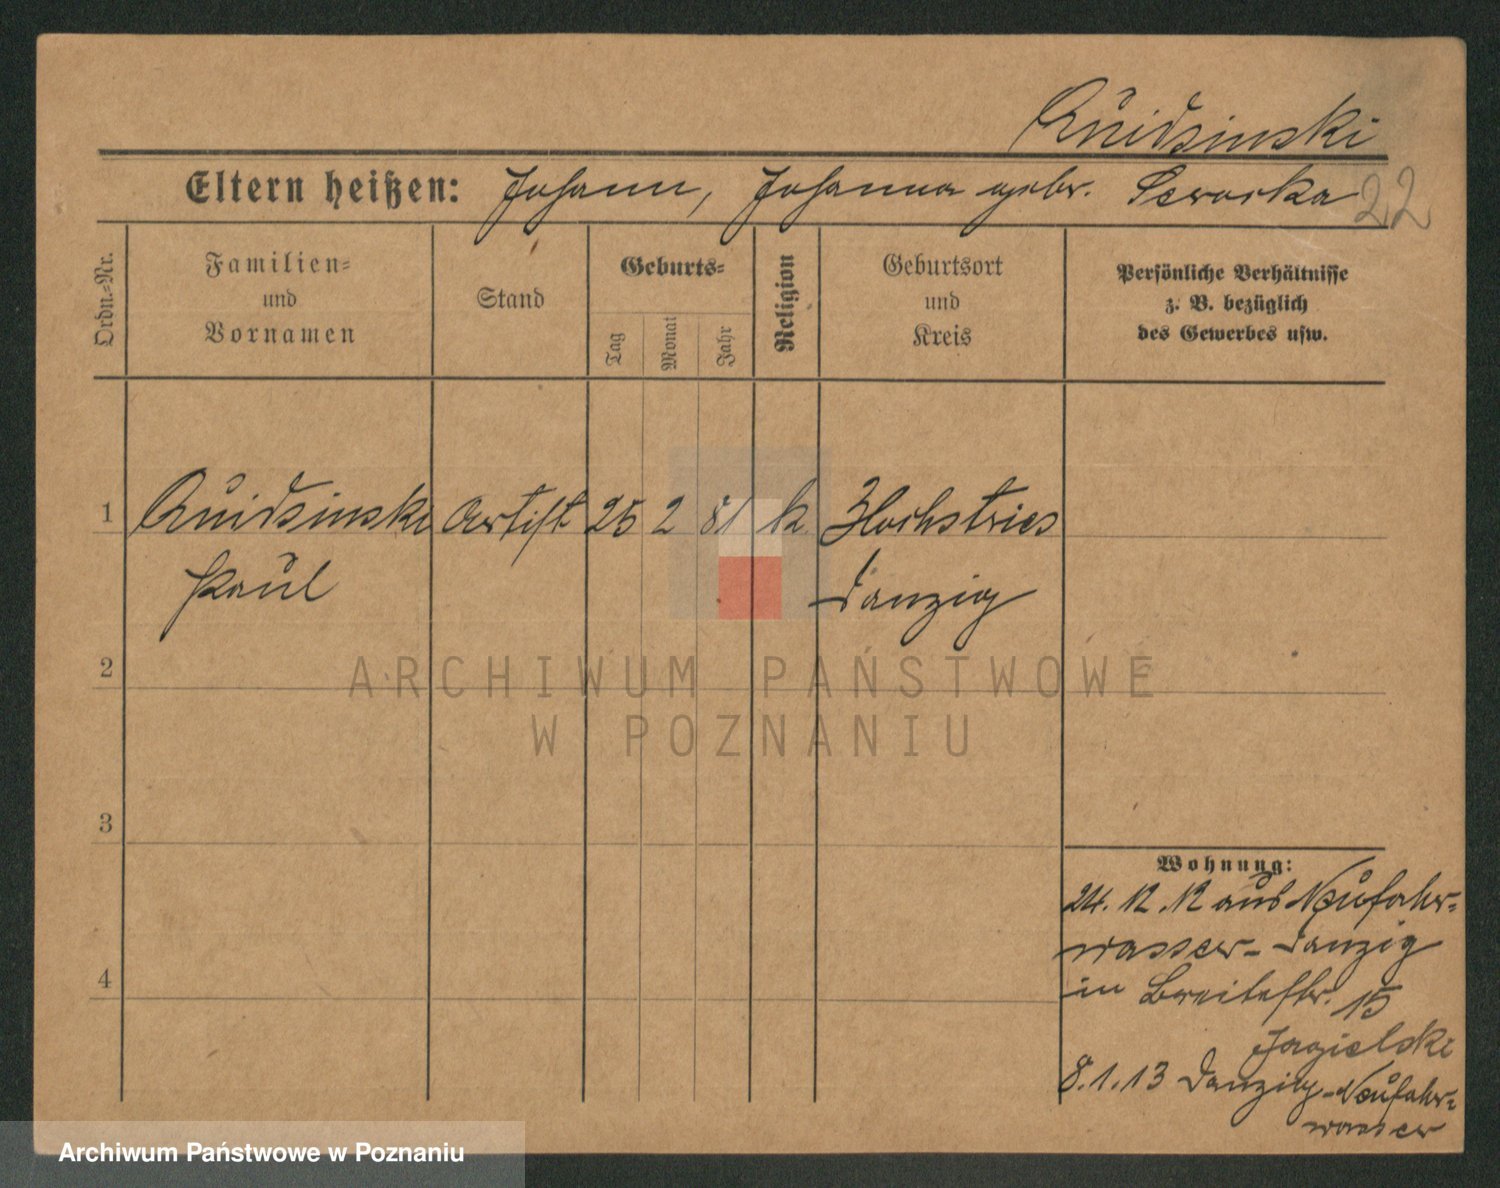 Ruidsinski
Eltern heißen: Johann, Johanna gebr. Serocka
22
Ordn.=Nr.
Familien=
und
Vornamen
Stand
Geburts=
Tag
Monat
Jahr
Religion
Geburtsort
und
Kreis
Persönliche Verhältnisse
z. B. bezüglich
des Gewerbes usw.
1 Ruidsinski Artist 25 2 81 k Hochstries
Paul Danzig
2
3
4
Wohnung:
24.12.12 aus Neufahr=
wasser-Danzig
in Breitestr. 15
Jagielski
8.1.13 Danzig-Neufahr=
wasser
ARCHIWUM PAŃSTWOWE
W POZNANIU
Archiwum Państwowe w Poznaniu